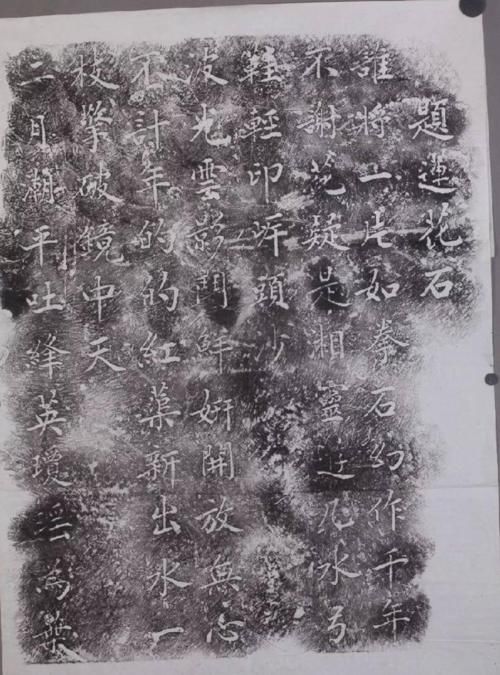 題蓮花石
誰將一片如拳石幻作千年
不謝花疑是湘靈凡弓
鞋輕印頭沙
波光雲影鬥鮮妍開放無心
不計年的的紅蕖新出水一
枝擎破鏡中天
二月潮平吐絳英瓊為葉